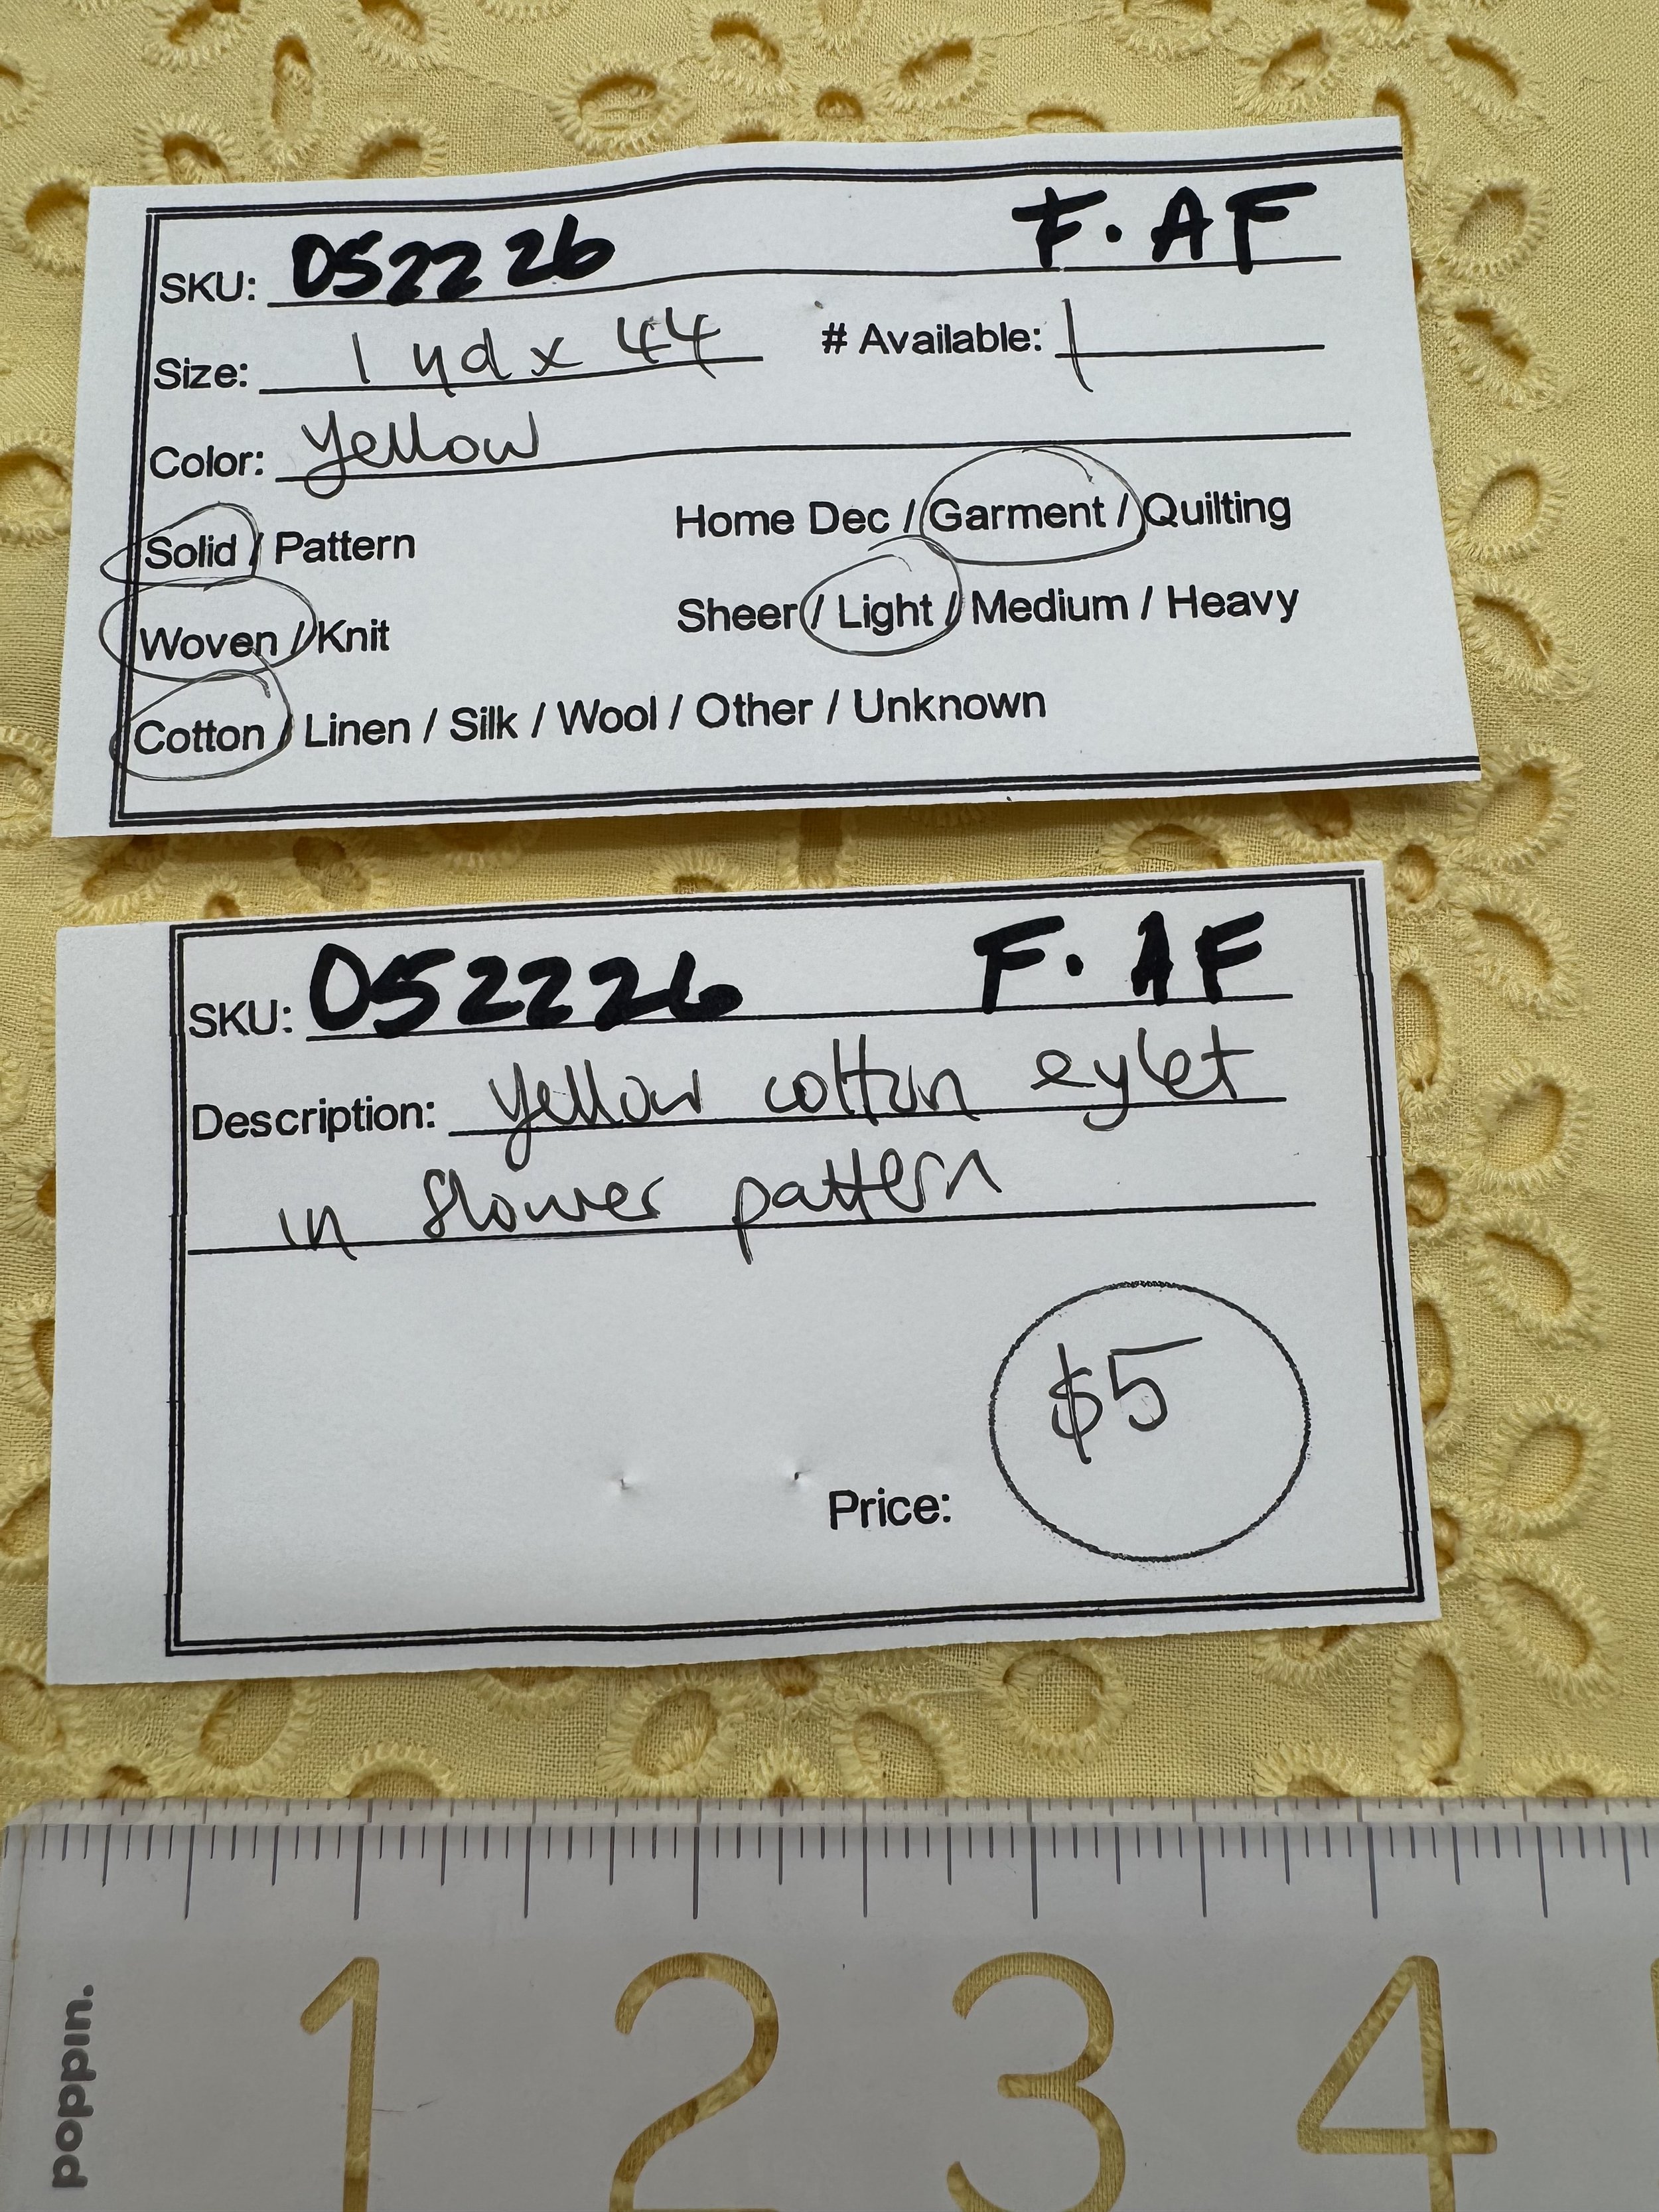 SKU: 052226 F. AF
Size: 1 yd x 44 # Available: 1
Color: Yellow
Solid / Pattern Home Dec / Garment / Quilting
Woven / Knit Sheer / Light / Medium / Heavy
Cotton / Linen / Silk / Wool / Other / Unknown
SKU: 052226 F. AF
Description: Yellow cotton eylet
in flower pattern
$5
Price:
1 2 3 4
poppin.